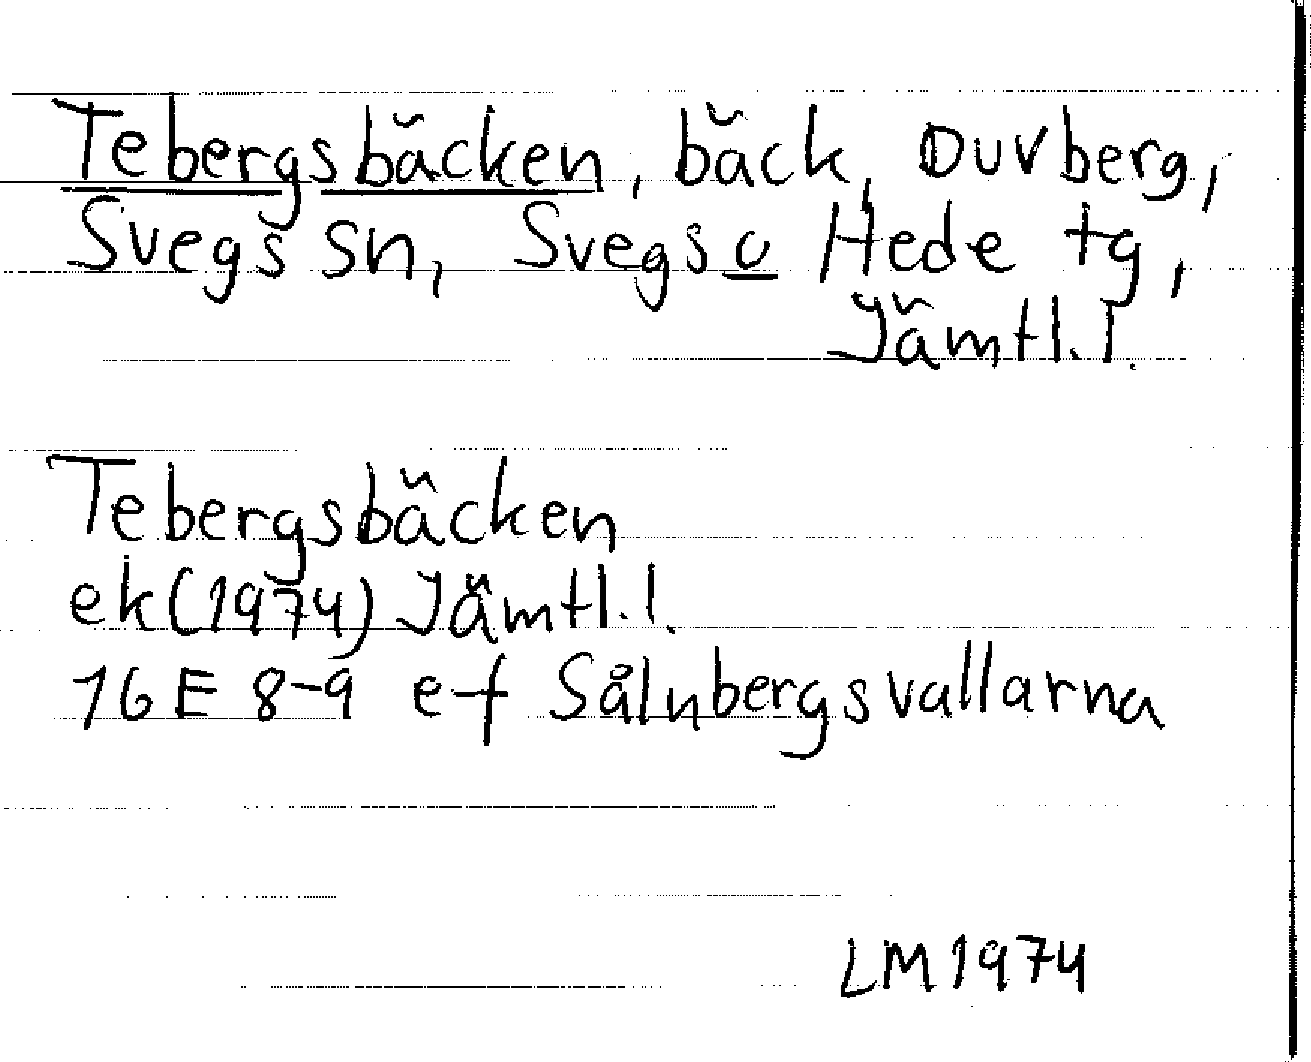 Tebergsbäcken, bäck, Duvberg,
Svegs sn, Svegs o Hede tg,
Jämtl.l.
Tebergsbäcken
ek(1974) Jämtl.l.
16E 8-9 e-f Sålnbergsvallarna
LM1974